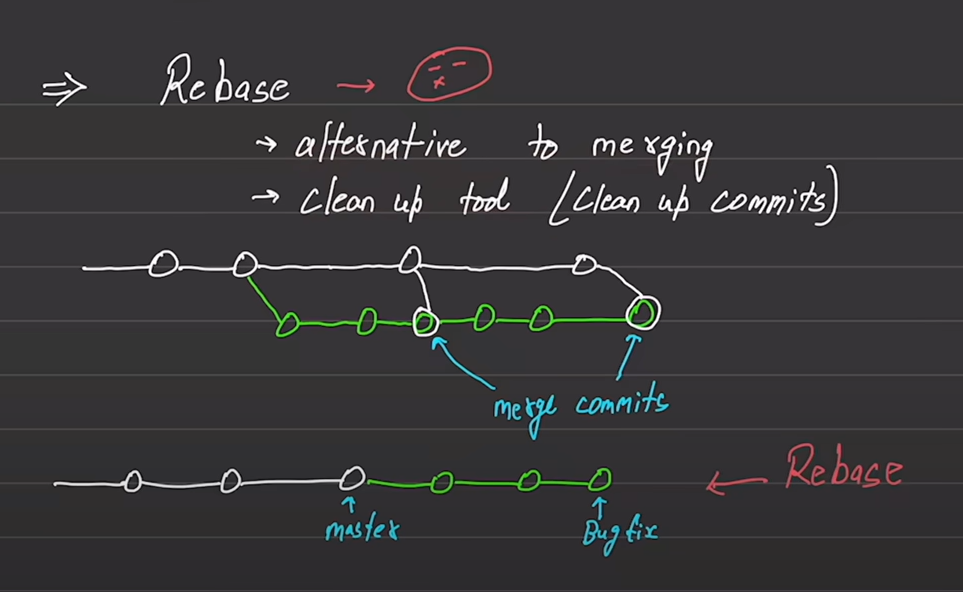 ⇒ Rebase →
→ alternative to merging
→ Clean up tool (Clean up commits)
merge commits
← Rebase
master
Bugfix